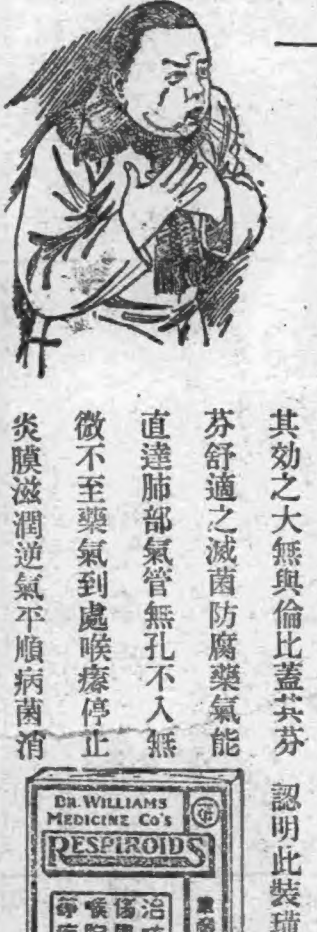 其効之大無與倫比蓋其芬
芬舒適之滅菌防腐藥氣能
直達肺部氣管無孔不入無
微不至藥氣到處喉癢停止
炎膜滋潤逆氣平順病菌消
認明此裝璜
DR. WILLIAMS
MEDICINE Co's
RESPIROIDS
治
傷
喉